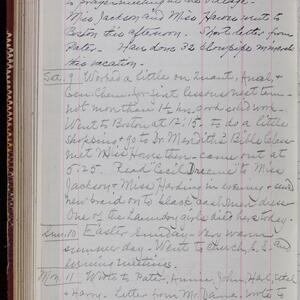 to prayer meeting in the village.
Miss Jackson and Miss Hawes went to
Boston this afternoon. Short letter from
Pater. Have done 32 blowpipe minerals
this vacation.
Sat. 9 Worked a little on Quant. Anal. &
Gen. Chem. for first lessons next term
not more than 1½ hrs. good solid work.
Went to Boston at 12/15, to do a little
shopping & go to Dr. Meredith's Bible class
met Miss Hawes then - came out at
5:25. Read Cecil Dreeme to Miss
Jackson & Miss Harding in evening & sewed
new braid on to black cashmere dress
One of the laundry girls died here today.
Sun. 10 Easter Sunday - Very warm
summer day. Went to church, S.S. and
evening meetings.
Mon. 11 Wrote to Pater, Annie, John,
& Harry. Letter from Mr. wrote to